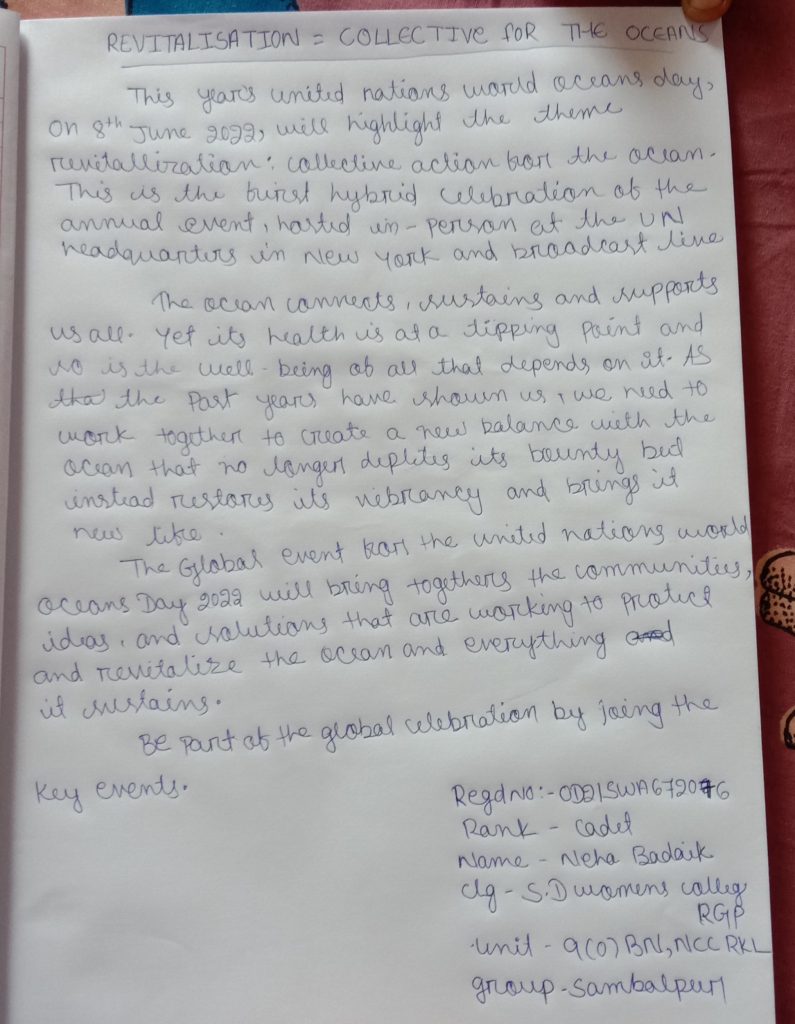 REVITALISATION = COLLECTIVE FOR THE OCEANS
This year's united nations world oceans day,
On 8th June 2022, will highlight the theme
revitallization: collective action for the ocean.
This is the first hybrid celebration of the
annual event, hosted in-person at the UN
headquarters in New York and broadcast live
The ocean connects, sustains and supports
us all. Yet its health is at a tipping point and
so is the well-being of all that depends on it. As
tha the past years have shown us, we need to
work together to create a new balance with the
ocean that no longer depletes its bounty but
instead restores its vibrancy and brings it
new life.
The Global event for the united nations world
oceans Day 2022 will bring togethers the communities,
ideas, and solutions that are working to protect
and revitalize the ocean and everything and
it sustains.
Be part of the global celebration by joing the
key events.
Regd No:- OD21SWA672076
Rank - Cadet
Name - Neha Badaik
clg - S.D womens colleg
RGP
unit - 9(O) BN, NCC RKL
group - Sambalpur